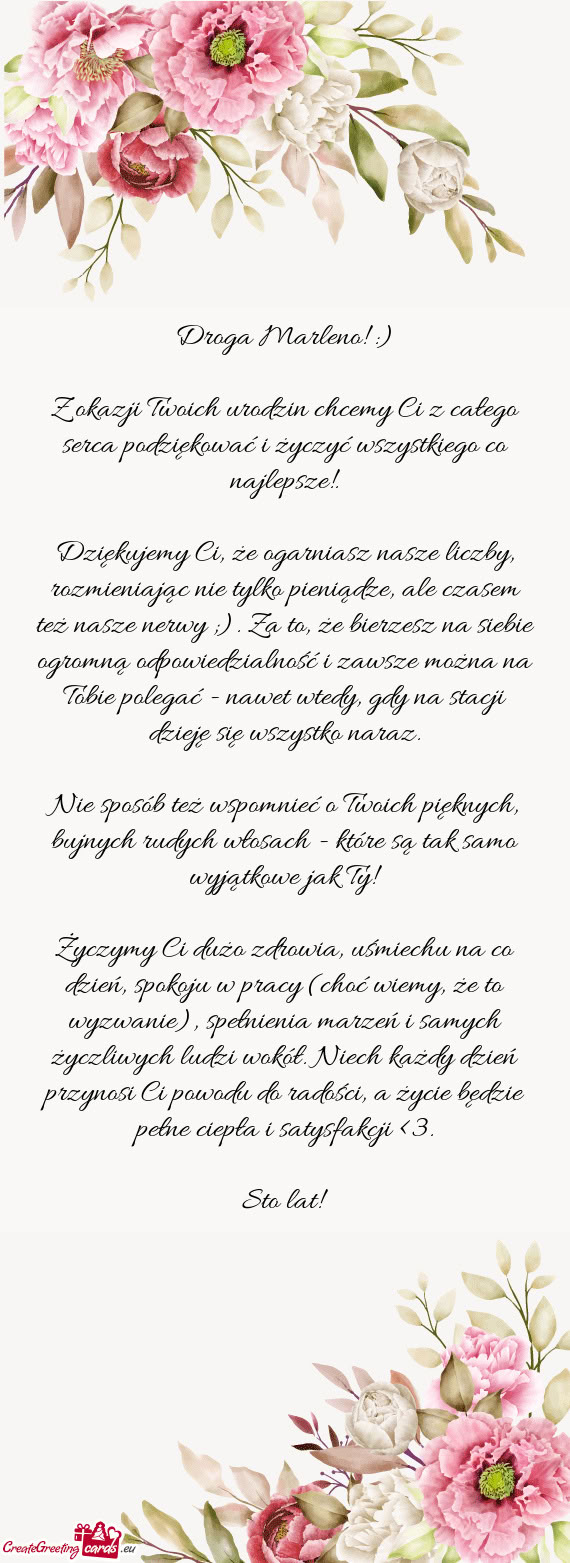 Droga Marleno! :)
Z okazji Twoich urodzin chcemy Ci z całego
serca podziękować i życzyć wszystkiego co
najlepsze!.
Dziękujemy Ci, że ogarniasz nasze liczby,
rozmieniając nie tylko pieniądze, ale czasem
też nasze nerwy ;) . Za to, że bierzesz na siebie
ogromną odpowiedzialność i zawsze można na
Tobie polegać - nawet wtedy, gdy na stacji
dzieję się wszystko naraz.
Nie sposób też wspomnieć o Twoich pięknych,
bujnych rudych włosach - które są tak samo
wyjątkowe jak Ty!
Życzymy Ci dużo zdrowia, uśmiechu na co
dzień, spokoju w pracy (choć wiemy, że to
wyzwanie) , spełnienia marzeń i samych
życzliwych ludzi wokół. Niech każdy dzień
przynosi Ci powodu do radości, a życie będzie
pełne ciepła i satysfakcji <3.
Sto lat!
CreateGreeting cards .eu